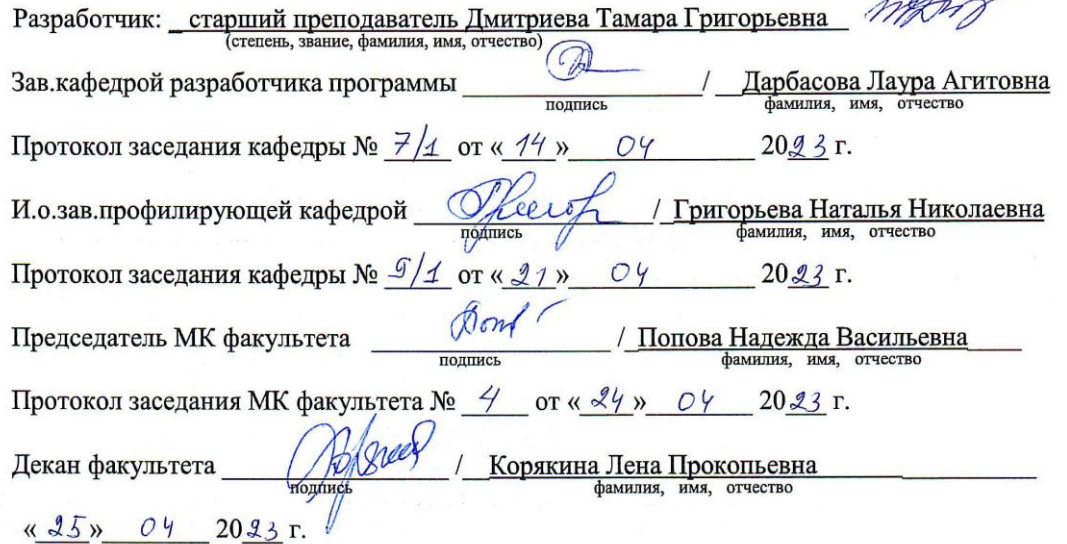 Разработчик: старший преподаватель Дмитриева Тамара Григорьевна
(степень, звание, фамилия, имя, отчество)
Зав.кафедрой разработчика программы / Дарбасова Лаура Агитовна
подпись фамилия, имя, отчество
Протокол заседания кафедры № 7/1 от « 14 » 04 2023 г.
И.о.зав.профилирующей кафедрой / Григорьева Наталья Николаевна
подпись фамилия, имя, отчество
Протокол заседания кафедры № 9/1 от « 21 » 04 2023 г.
Председатель МК факультета / Попова Надежда Васильевна
подпись фамилия, имя, отчество
Протокол заседания МК факультета № 4 от « 24 » 04 2023 г.
Декан факультета / Корякина Лена Прокопьевна
подпись фамилия, имя, отчество
« 25 » 04 2023 г.